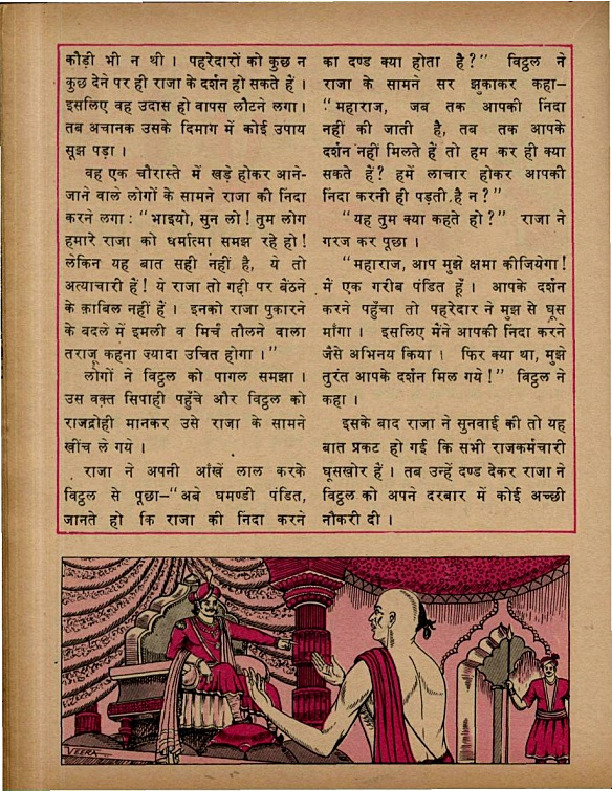 कौड़ी भी न थी । पहरेदारों को कुछ न
कुछ देने पर ही राजा के दर्शन हो सकते हैं ।
इसलिए वह उदास हो वापस लौटने लगा ।
तब अचानक उसके दिमाग में कोई उपाय
सूझ पड़ा ।
वह एक चौरास्ते में खड़े होकर आने-
जाने वाले लोगों के सामने राजा की निंदा
करने लगा : “भाइयो, सुन लो ! तुम लोग
हमारे राजा को धर्मात्मा समझ रहे हो !
लेकिन यह बात सही नहीं है, ये तो
अत्याचारी हैं ! ये राजा तो गद्दी पर बैठने
के क़ाबिल नहीं हैं । इनको राजा पुकारने
के बदले में इमली व मिर्च तौलने वाला
तराजू कहना ज्यादा उचित होगा ।”
लोगों ने विट्ठल को पागल समझा ।
उस वक़्त सिपाही पहुँचे और विट्ठल को
राजद्रोही मानकर उसे राजा के सामने
खींच ले गये ।
राजा ने अपनी आँखें लाल करके
विट्ठल से पूछा–“अबे घमण्डी पंडित,
जानते हो कि राजा की निंदा करने
का दण्ड क्या होता है ?” विट्ठल ने
राजा के सामने सर झुकाकर कहा–
“महाराज, जब तक आपकी निंदा
नहीं की जाती है, तब तक आपके
दर्शन नहीं मिलते हैं तो हम कर ही क्या
सकते हैं ? हमें लाचार होकर आपकी
निंदा करनी ही पड़ती है न ?”
“यह तुम क्या कहते हो ?” राजा ने
गरज कर पूछा ।
“महाराज, आप मुझे क्षमा कीजियेगा !
में एक गरीब पंडित हूँ । आपके दर्शन
करने पहुँचा तो पहरेदार ने मुझ से घूस
माँगा । इसलिए मैंने आपकी निंदा करने
जैसे अभिनय किया । फिर क्या था, मुझे
तुरंत आपके दर्शन मिल गये !” विट्ठल ने
कहा ।
इसके बाद राजा ने सुनवाई की तो यह
बात प्रकट हो गई कि सभी राजकर्मचारी
घूसखोर हैं । तब उन्हें दण्ड देकर राजा ने
विट्ठल को अपने दरबार में कोई अच्छी
नौकरी दी ।
VEERA